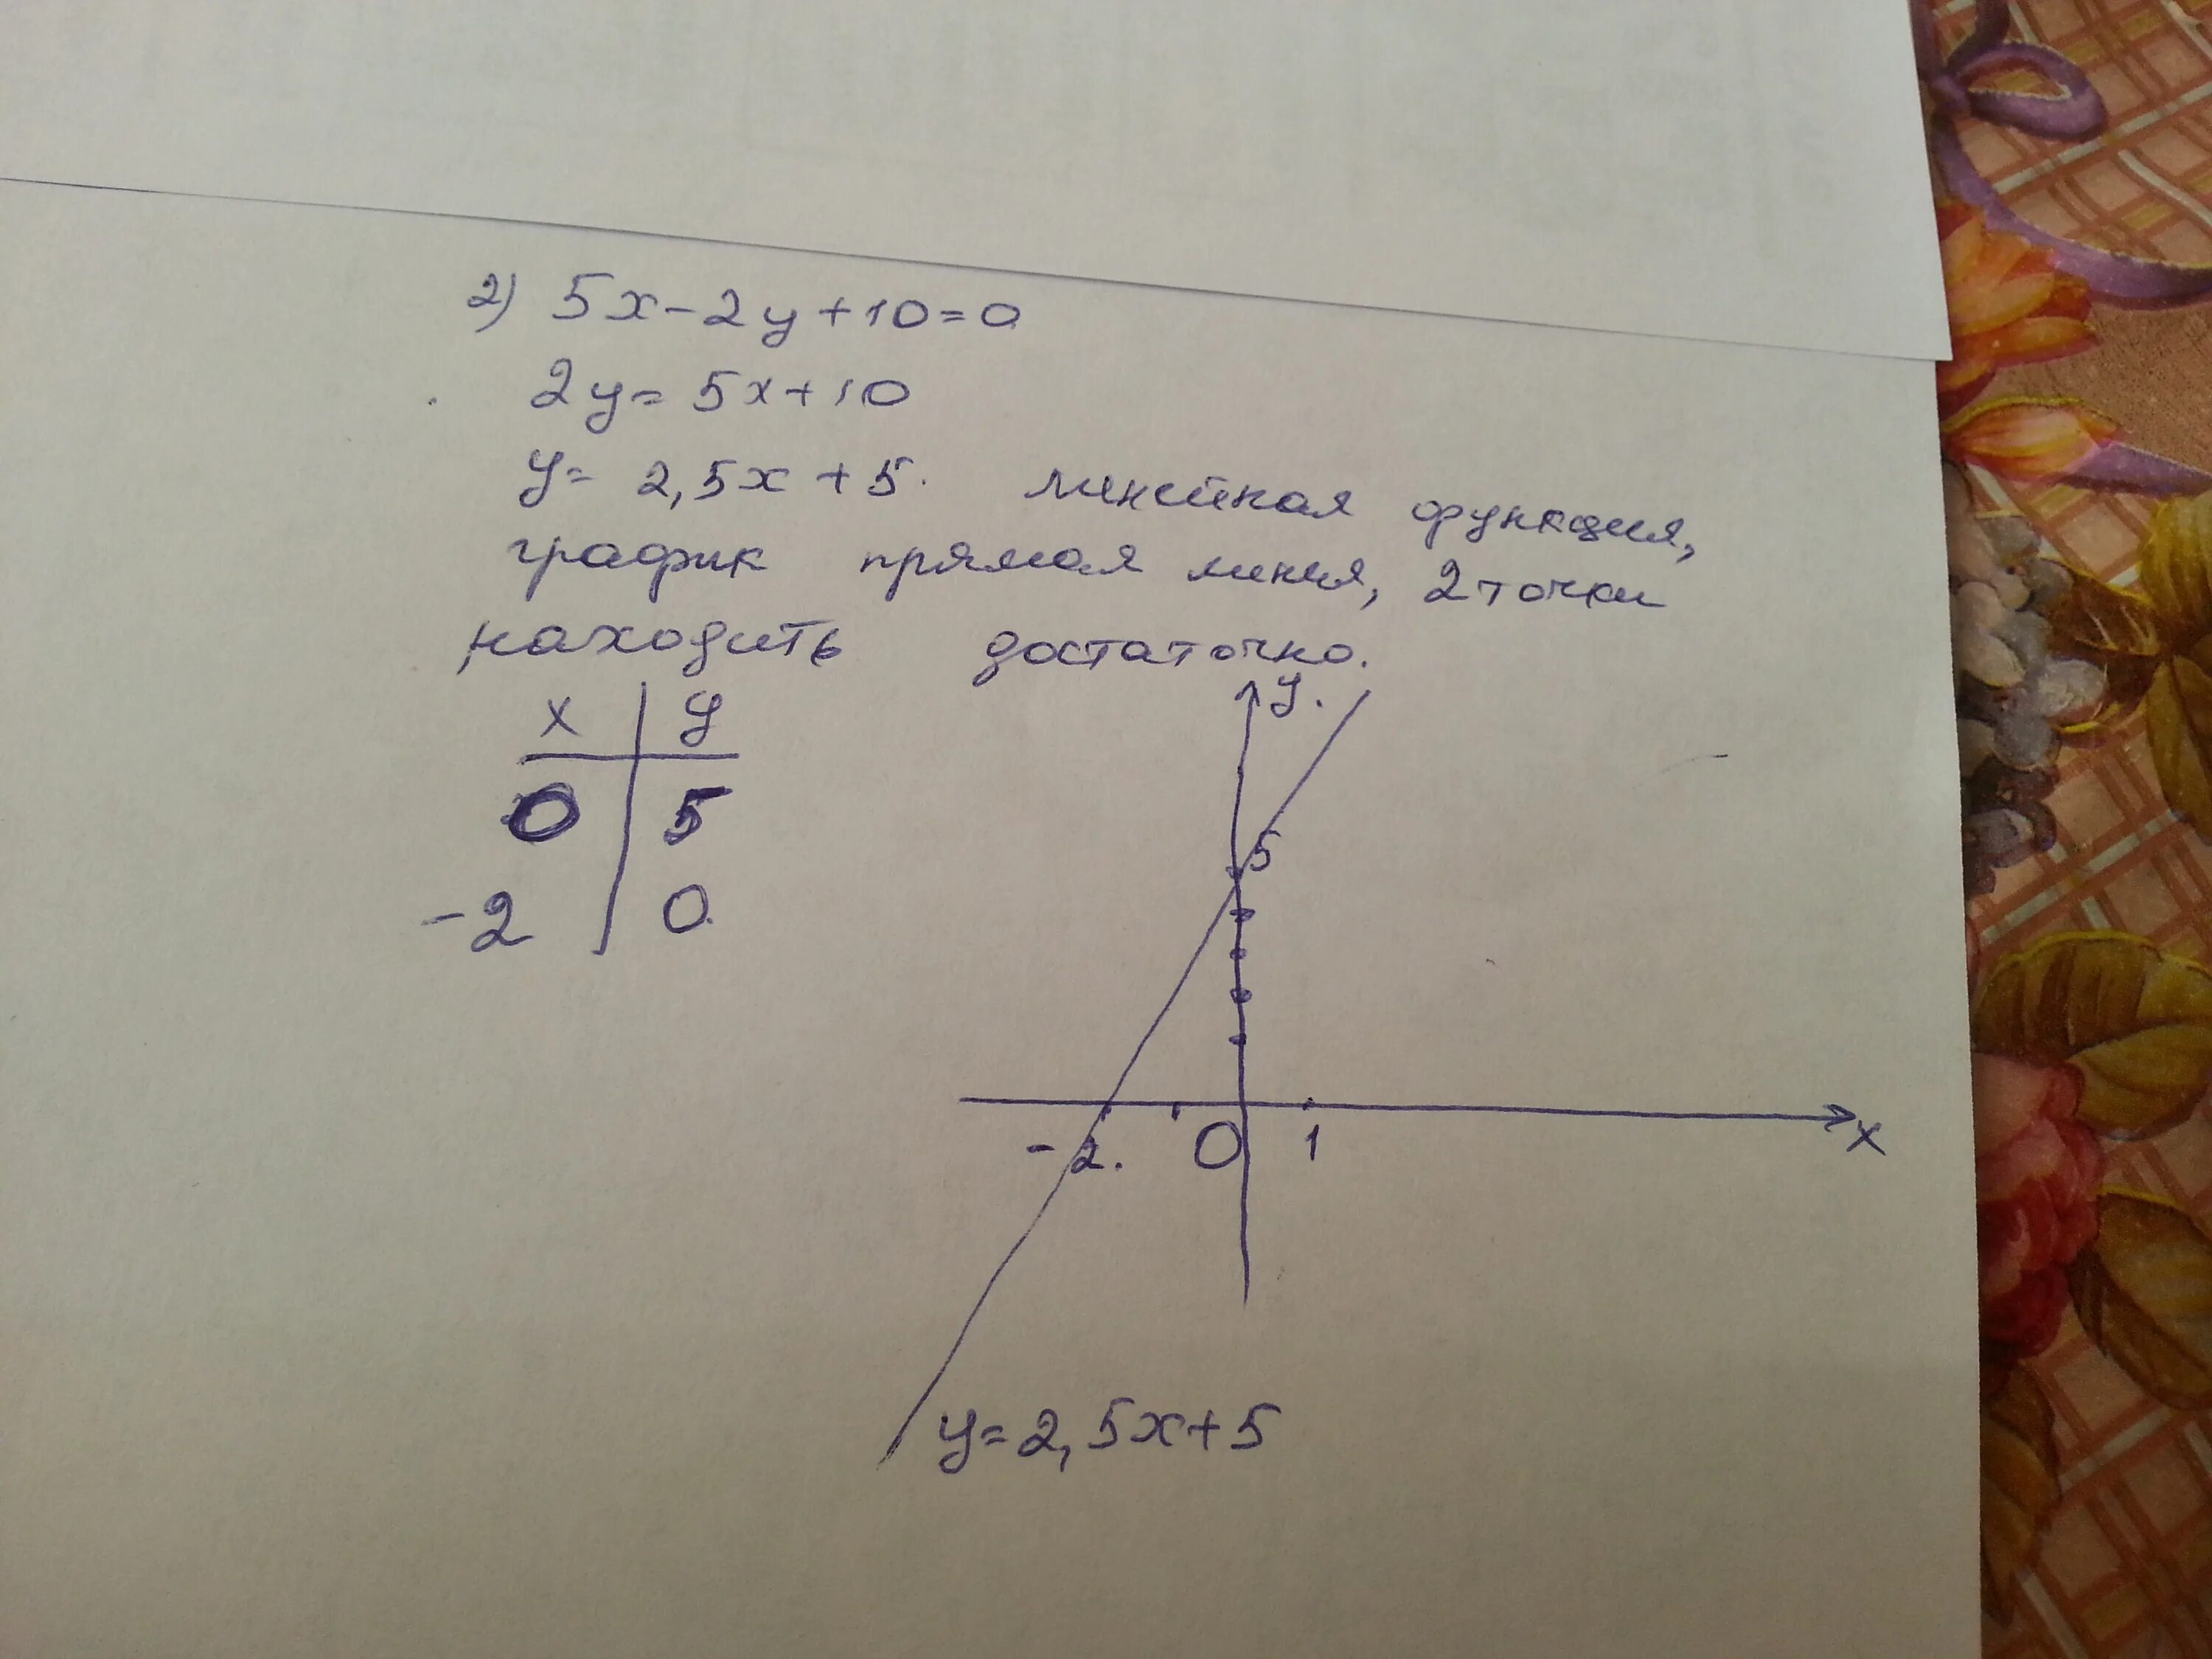 2) 5x-2y+10=0
2y= 5x+10
y= 2,5x+5. линейная функция,
график прямая линия, 2 точки
находить достаточно.
x y
0 5
-2 0.
y.
5
-2. 0 1 x
y=2,5x+5